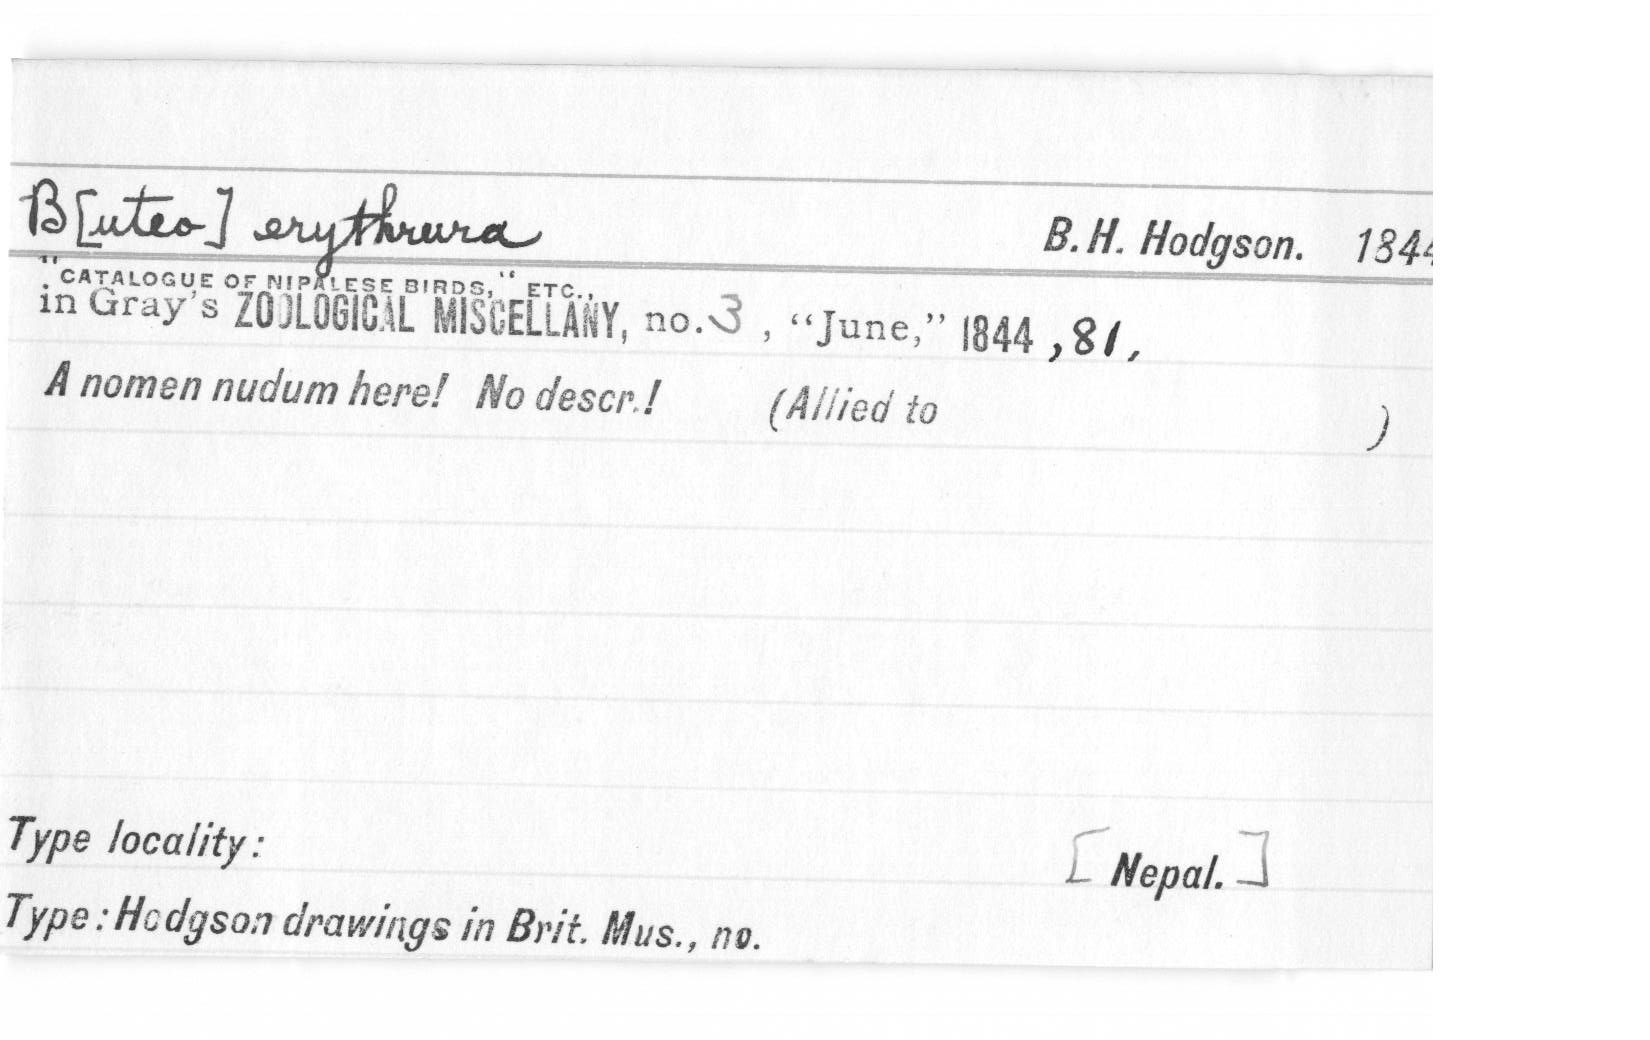 B[uteo] erythrura B. H. Hodgson. 1844
"CATALOGUE OF NIPALESE BIRDS," ETC.,
in Gray's ZOOLOGICAL MISCELLANY, no. 3, "June," 1844, 81,
A nomen nudum here! No descr.! (Allied to )
Type locality: [Nepal.]
Type: Hodgson drawings in Brit. Mus., no.